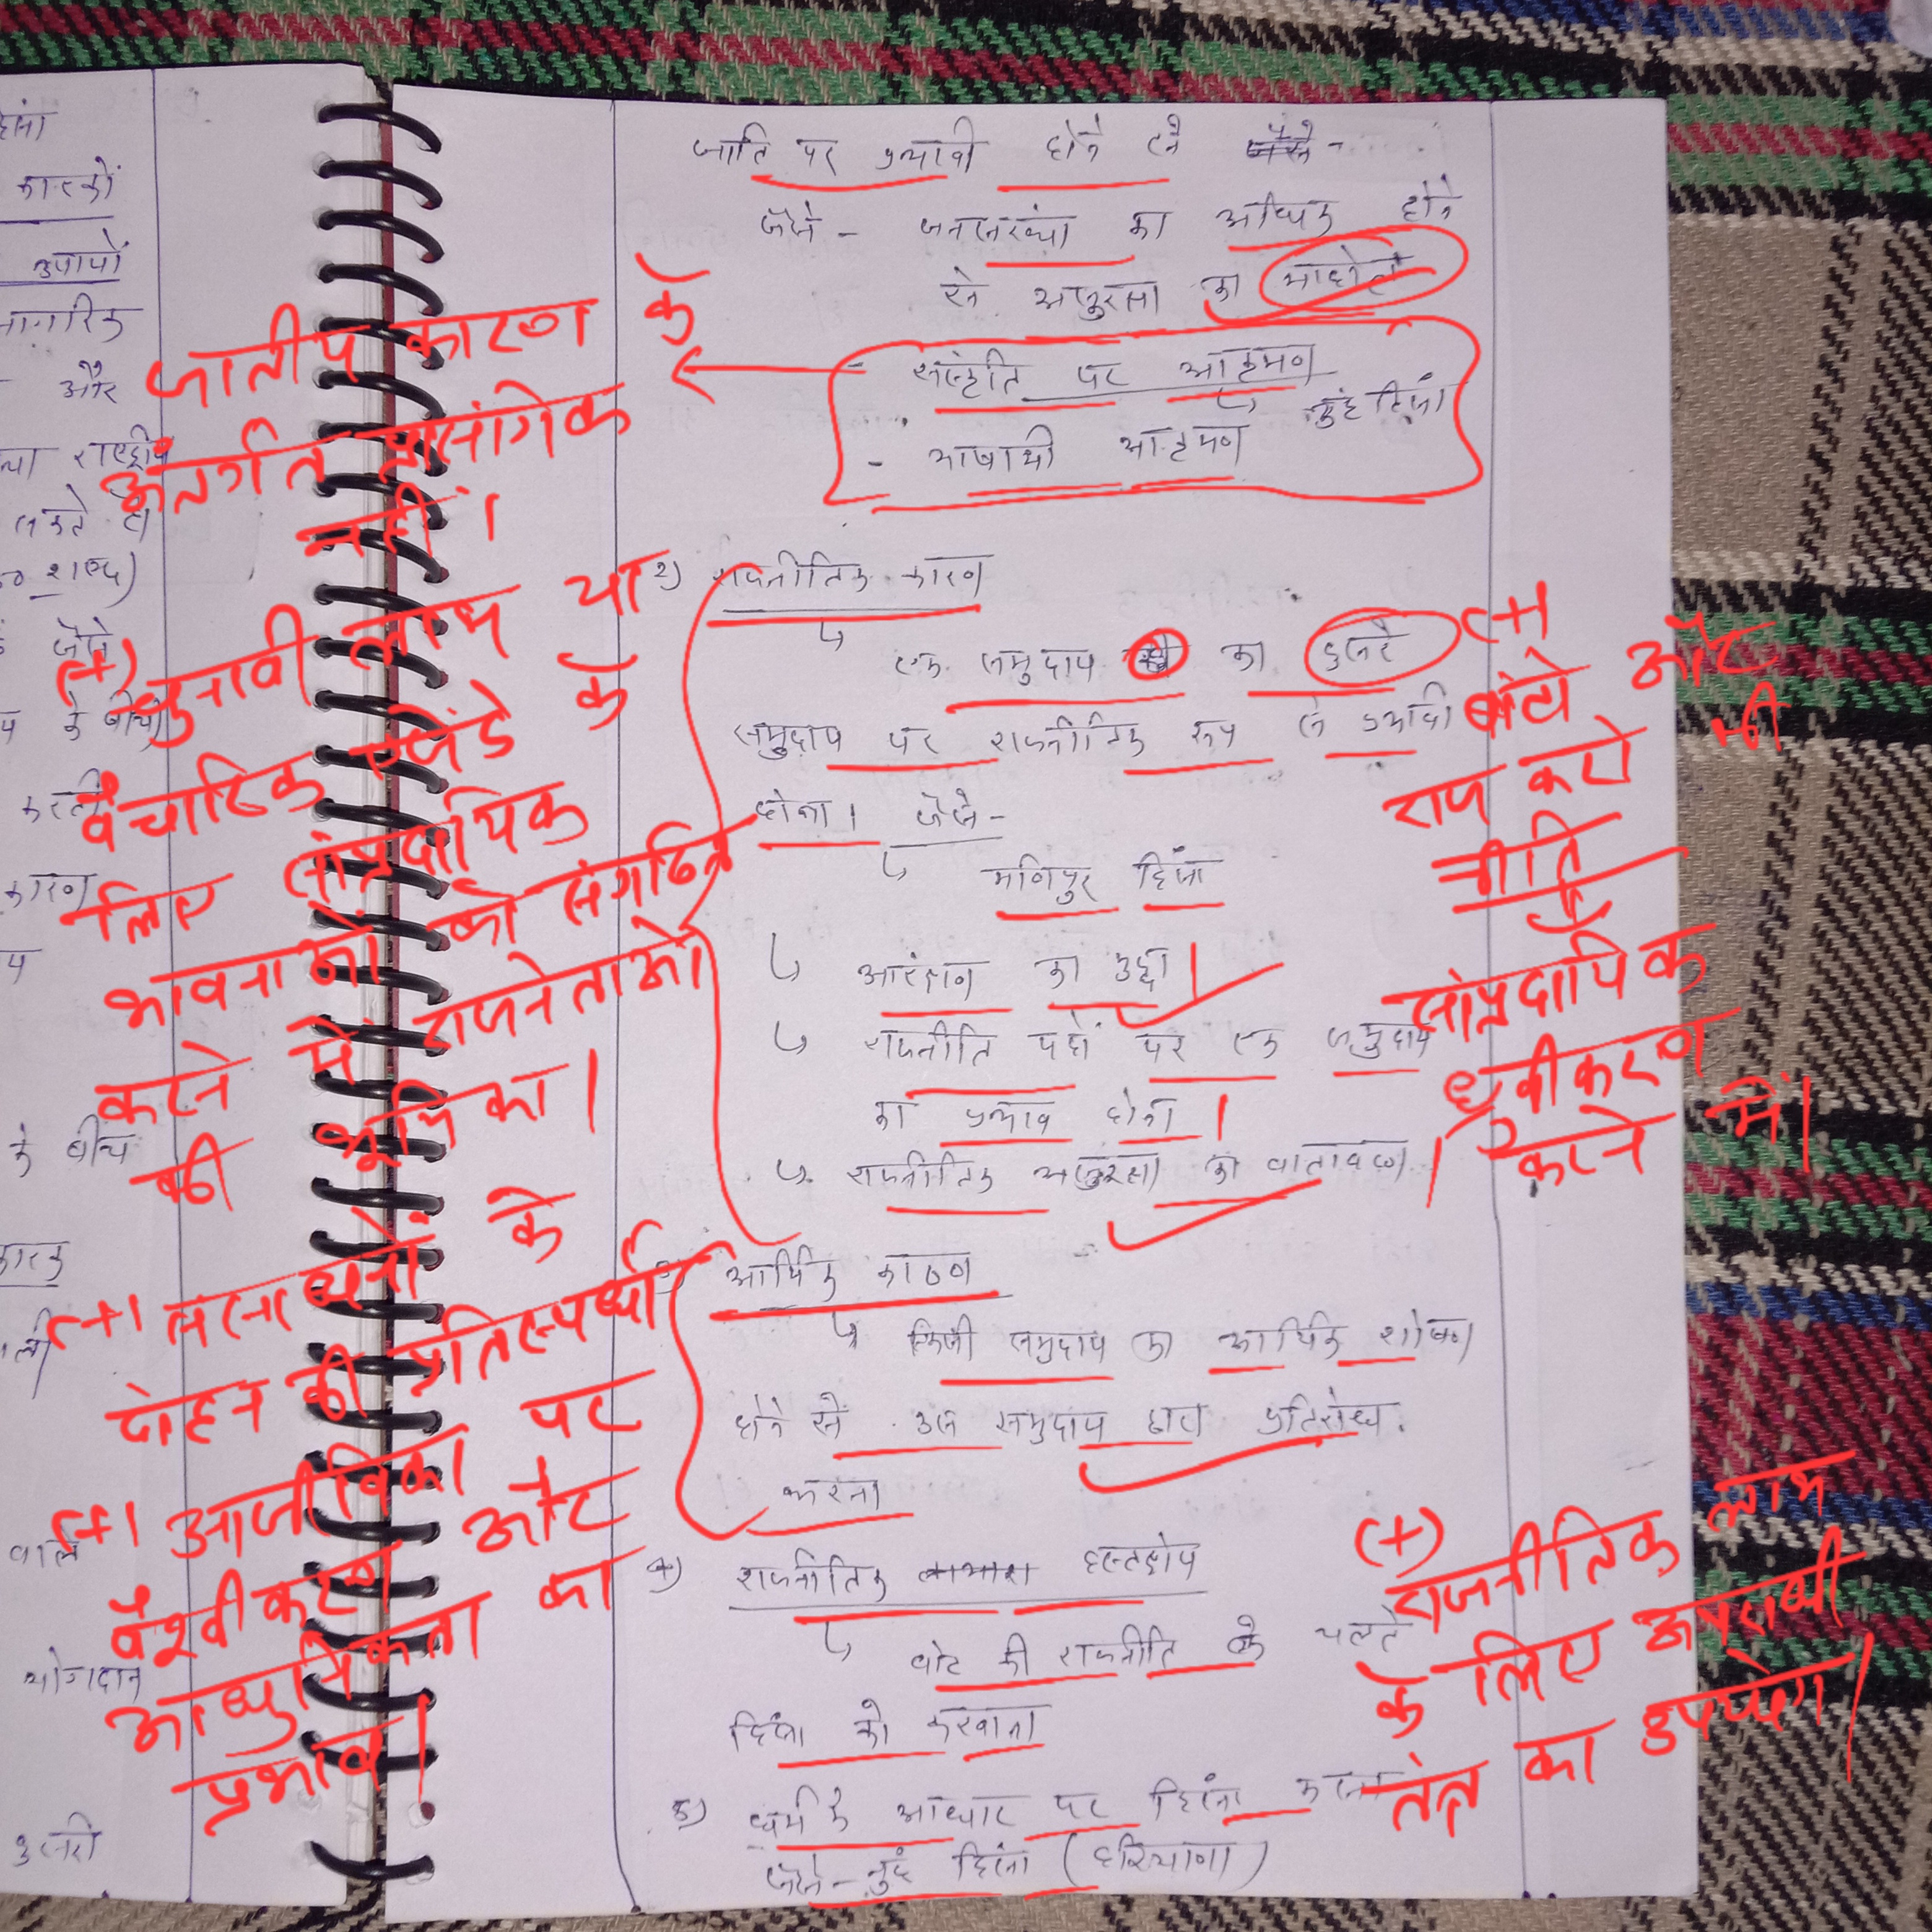 हिंसा
कारकों
उपायों
नागरिक
- और
राष्ट्रीय
सकते है
शब्द)
जैसे
के बीच
करती
कारण
के बीच
कारक
वाले
योगदान
दुसरी
जाति पर प्रभावी होने से जैसे -
जैसे - जनसंख्या का अधिक होने
से असुरक्षा का माहौल
- संस्कृति पर आक्रमण
- भाषायी आक्रमण
नुहं हिंसा
जातीय कारण के
अंतर्गत प्रासंगिक
नहीं।
२) राजनीतिक कारण
↳ एक समुदाय का दुसरे
समुदाय पर राजनीतिक रूप से प्रभावी
होना। जैसे -
↳ मणिपुर हिंसा
↳ आरक्षण का मुद्दा।
↳ राजनीति पदों पर एक समुदाय
का प्रभाव होना।
↳ राजनीतिक असुरक्षा का वातावरण।
(+)
चुनावी लाभ या
वैचारिक एजेंडे के
लिए सांप्रदायिक
भावनाओं को संगठित
करने में राजनेताओं
की भूमिका।
(+)
बांटो और
राज करो की
नीति
सांप्रदायिक
ध्रुवीकरण
करने में।
आर्थिक कारण
↳ किसी समुदाय का आर्थिक शोषण
होने से उस समुदाय द्वारा प्रतिरोध
करना
(+) संसाधनों के
दोहन की प्रतिस्पर्धा
(+) आजीविका पर
वैश्वीकरण और
आधुनिकता का
प्रभाव।
राजनीतिक हस्तक्षेप
↳ वोट की राजनीति के चलते
हिंसा को करवाना
(+)
राजनीतिक लाभ
के लिए अपराधी
तंत्र का उपयोग।
5) धर्म के आधार पर हिंसा करना
जैसे - नुहं हिंसा (हरियाणा)